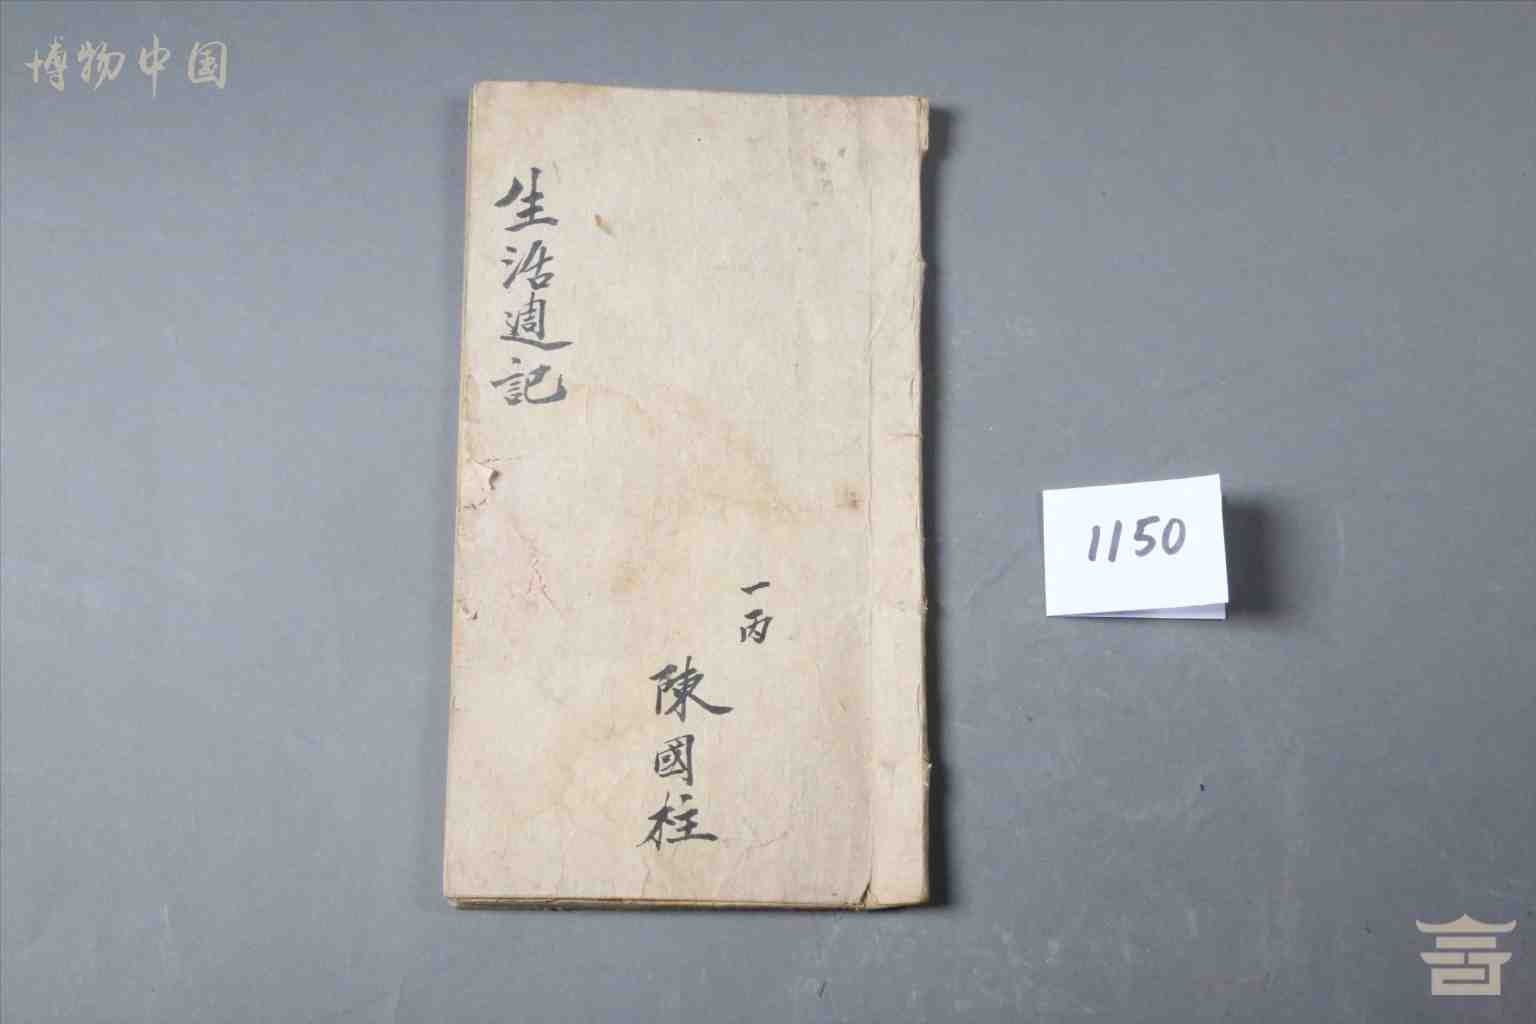 博物中国
生活週記
一丙
陳國柱
1150